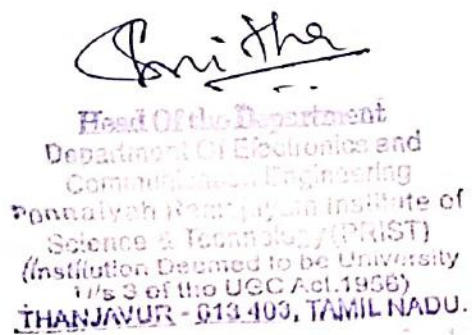 Head Of the Department
Department Of Electronics and
Communication Engineering
Ponnaiyah Ramajayam Institute of
Science & Technology (PRIST)
(Institution Deemed to be University
U/s 3 of the UGC Act.1956)
THANJAVUR - 613 403, TAMIL NADU.